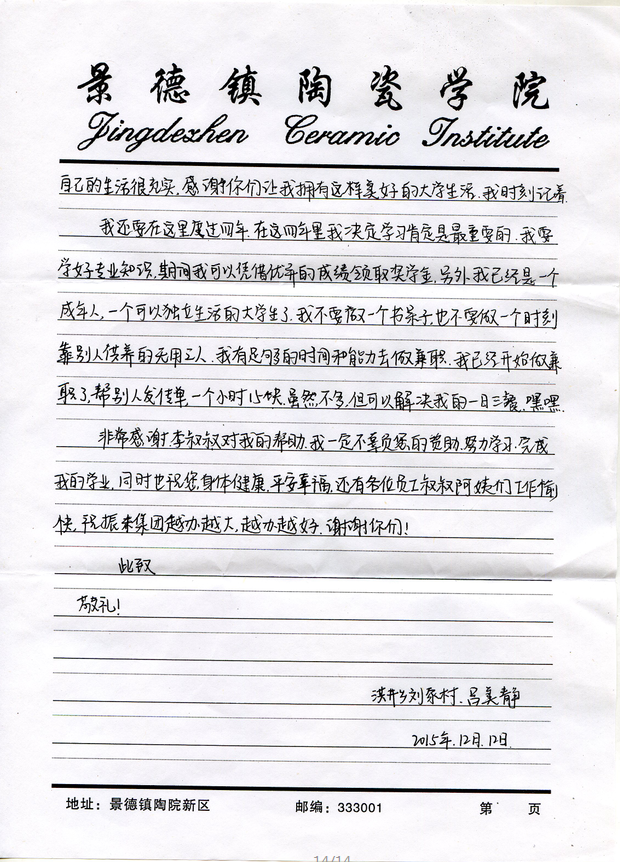 景德镇陶瓷学院
Jingdezhen Ceramic Institute
自己的生活很充实,感谢你们让我拥有这样美好的大学生活,我时刻记着.
我还要在这里度过四年,在这四年里我决定学习肯定是最重要的,我要
学好专业知识,期间我可以凭借优异的成绩领取奖学金,另外,我已经是一个
成年人,一个可以独立生活的大学生了,我不要做一个书呆子,也不要做一个时刻
靠别人供养的无用之人,我有足够的时间和能力去做兼职,我已经开始做兼
职了,帮别人发传单,一个小时15块,虽然不多,但可以解决我的一日三餐,嘿嘿.
非常感谢李叔叔对我的帮助,我一定不辜负您的资助,努力学习,完成
我的学业,同时也祝您身体健康,平安幸福,还有各位员工叔叔阿姨们工作愉
快,祝振来集团越办越大,越办越好,谢谢你们!
此致
敬礼!
刘家村,吕美静
2015年.12月.12日.
地址:景德镇陶院新区 邮编:333001 第 页
14/14